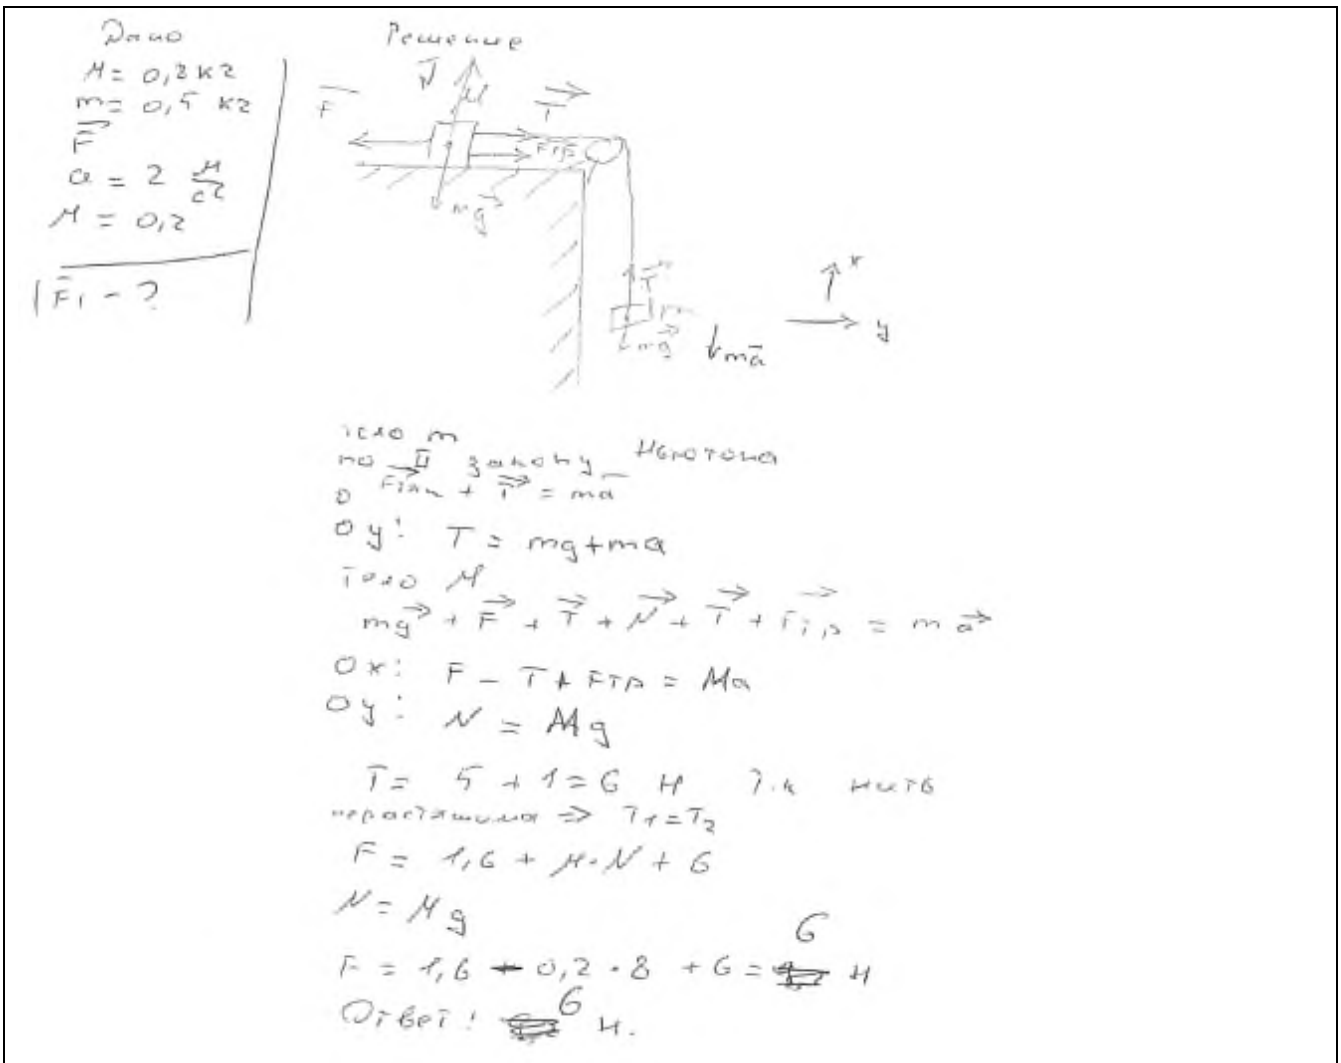 Дано
M = 0,8 кг
m = 0,5 кг
F
a = 2 м/с²
μ = 0,2
|F| - ?
Решение
N
M
T
F
Fтр
mg
T
m
mg
ma
x
y
тело m
по II закону Ньютона
+ T = ma
Oy: T = mg+ma
тело M
mg + F + T + N + T + Fтр = ma
Ox: F - T + Fтр = Ma
Oy: N = Mg
T = 5 + 1 = 6 Н т.к нить
нерастяжима => T1=T2
F = 1,6 + μ·N + 6
N = Mg
F = 1,6 - 0,2 · 8 + 6 = 6 Н
Ответ: 6 Н.